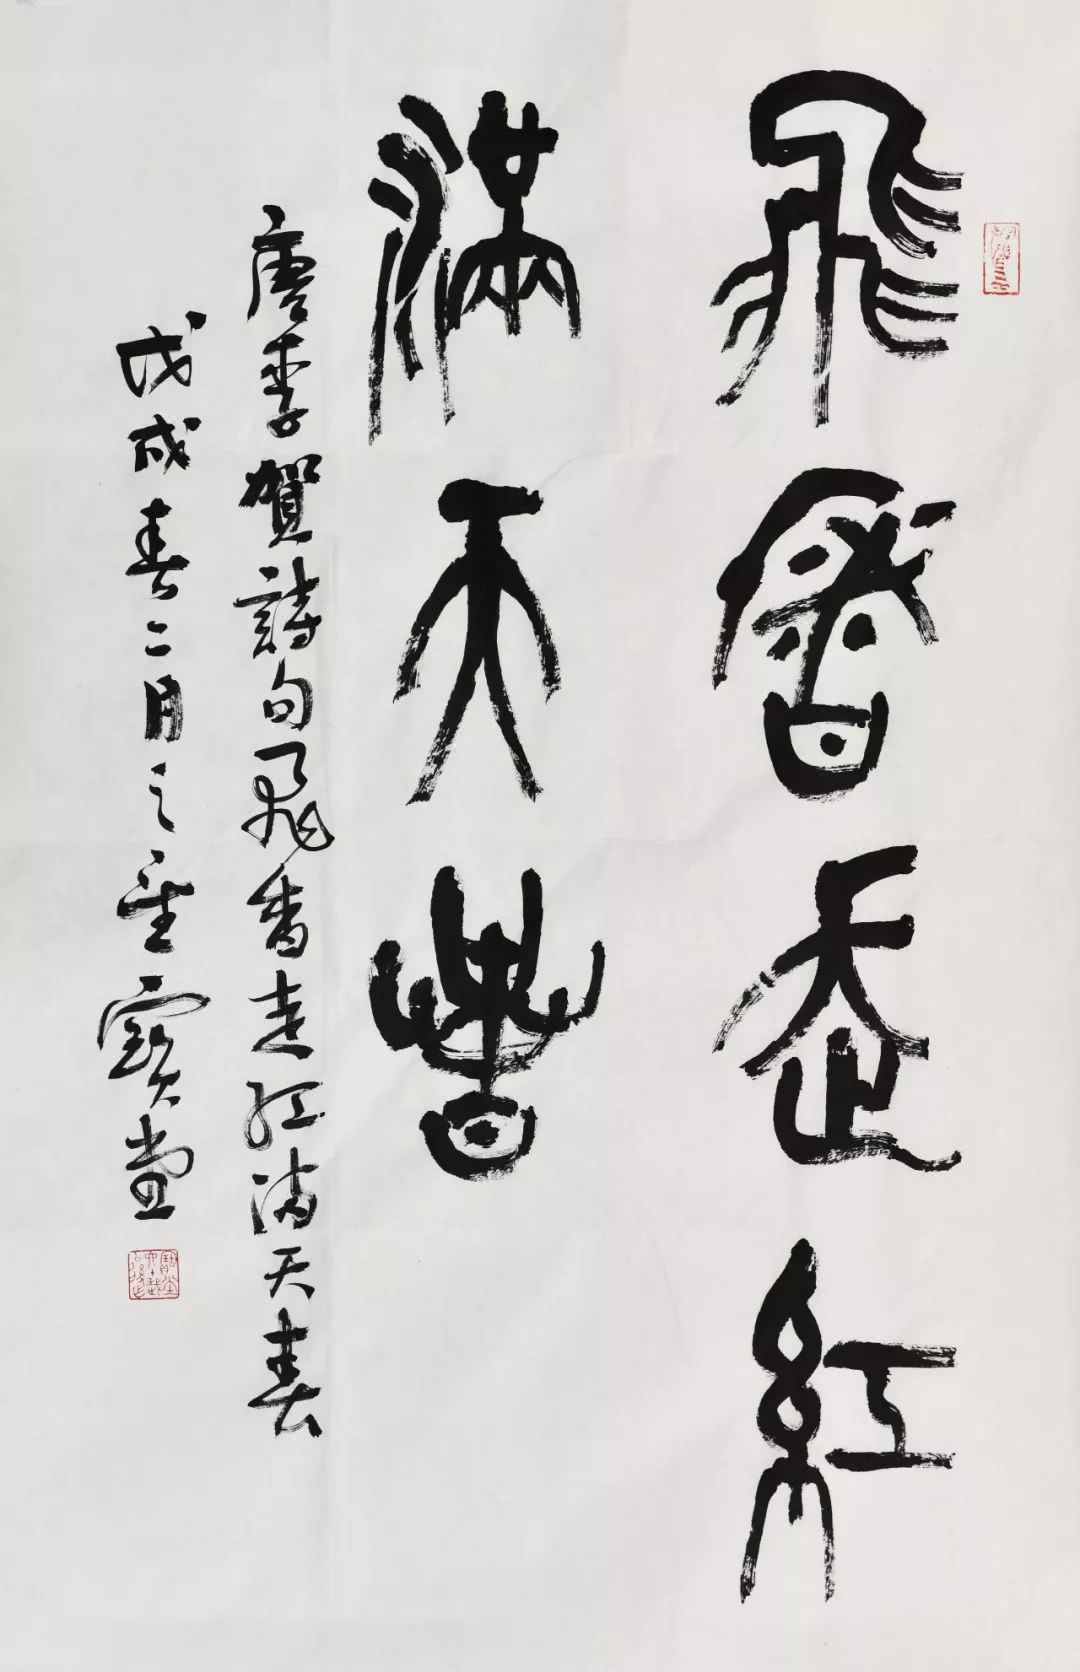 飛香走紅
滿天春
唐李賀詩句飛香走紅滿天春
戊戌春二月之望寶堂